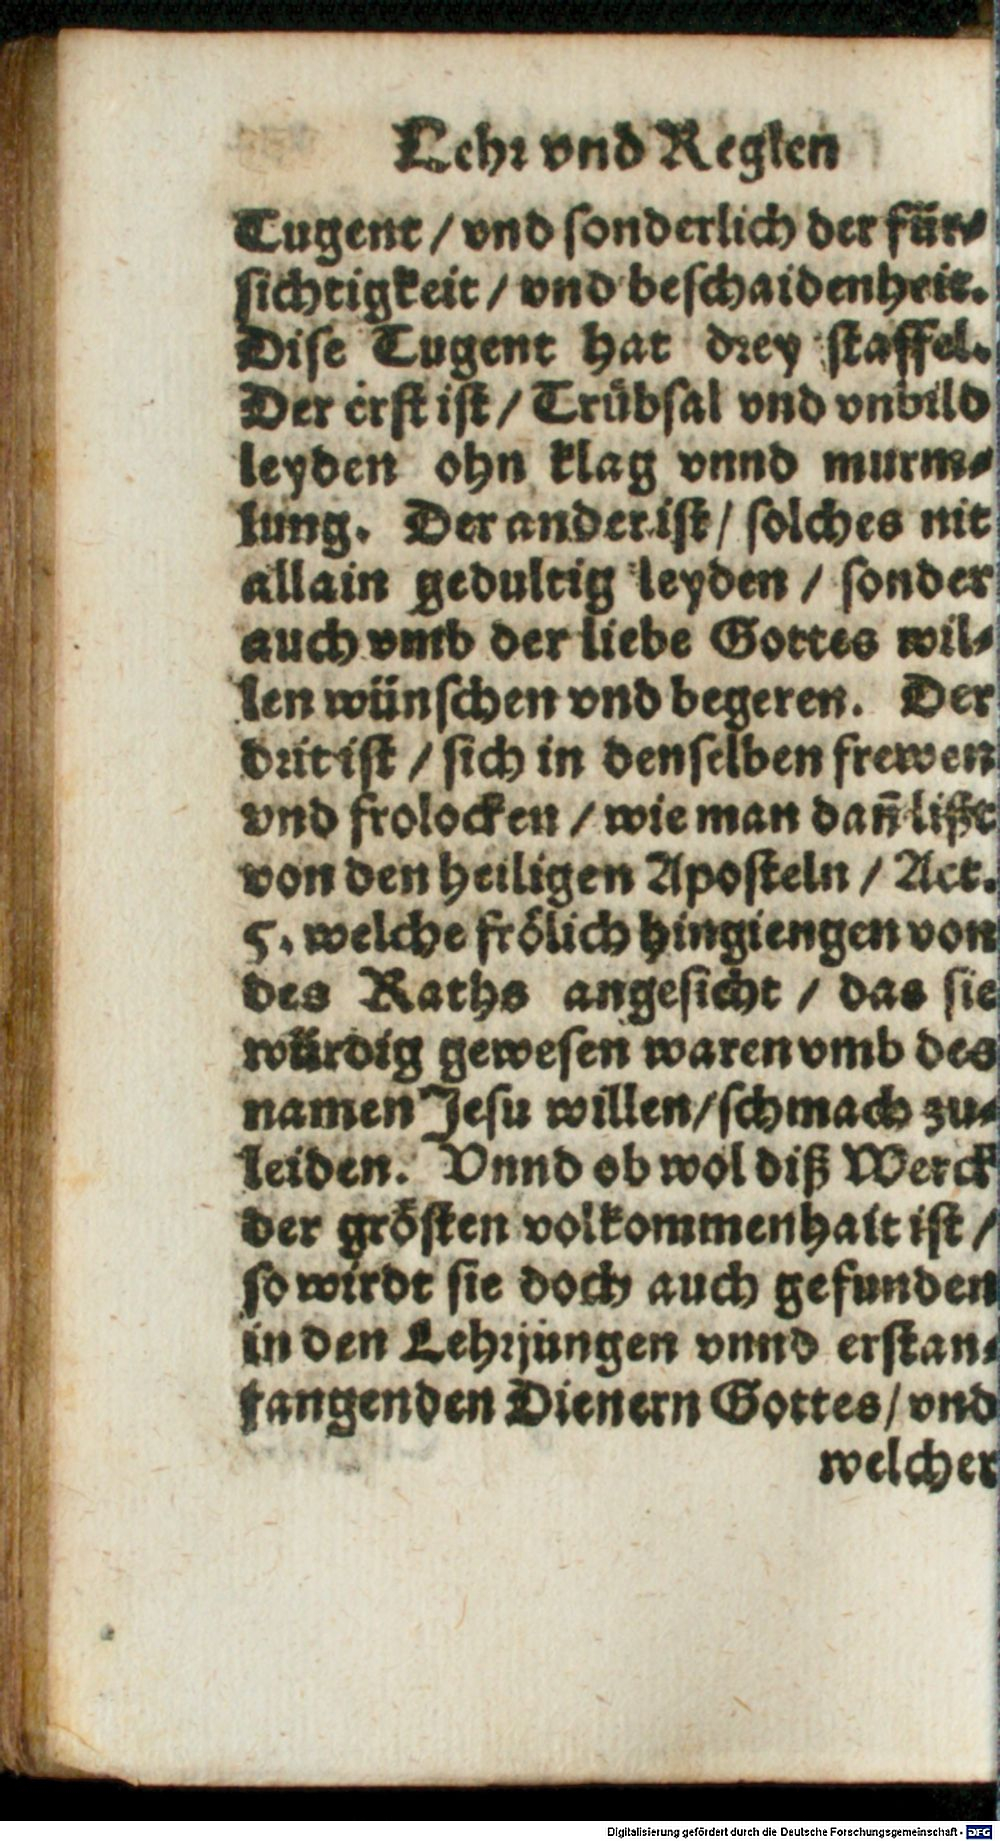 Lehr vnd Reglen
Tugent / vnd sonderlich der für-
sichtigkeit / vnd beschaidenheit.
Dise Tugent hat drey staffel.
Der erst ist / Trübsal vnd vnbild
leyden ohn klag vnnd murm-
lung. Der ander ist / solches nit
allain gedultig leyden / sonder
auch vmb der liebe Gottes wil-
len wünschen vnd begeren. Der
drit ist / sich in denselben frewen
vnd frolocken / wie man dañ lißt
von den heiligen Aposteln / Act.
5. welche frölich hingiengen von
des Raths angesicht / das sie
würdig gewesen waren vmb des
namen Jesu willen / schmach zu-
leiden. Vnnd ob wol diß Werck
der grösten volkommenhait ist /
so wirdt sie doch auch gefunden
in den Lehrjungen vnnd erstan-
fangenden Dienern Gottes / vnd
welcher
Digitalisierung gefördert durch die Deutsche Forschungsgemeinschaft - DFG